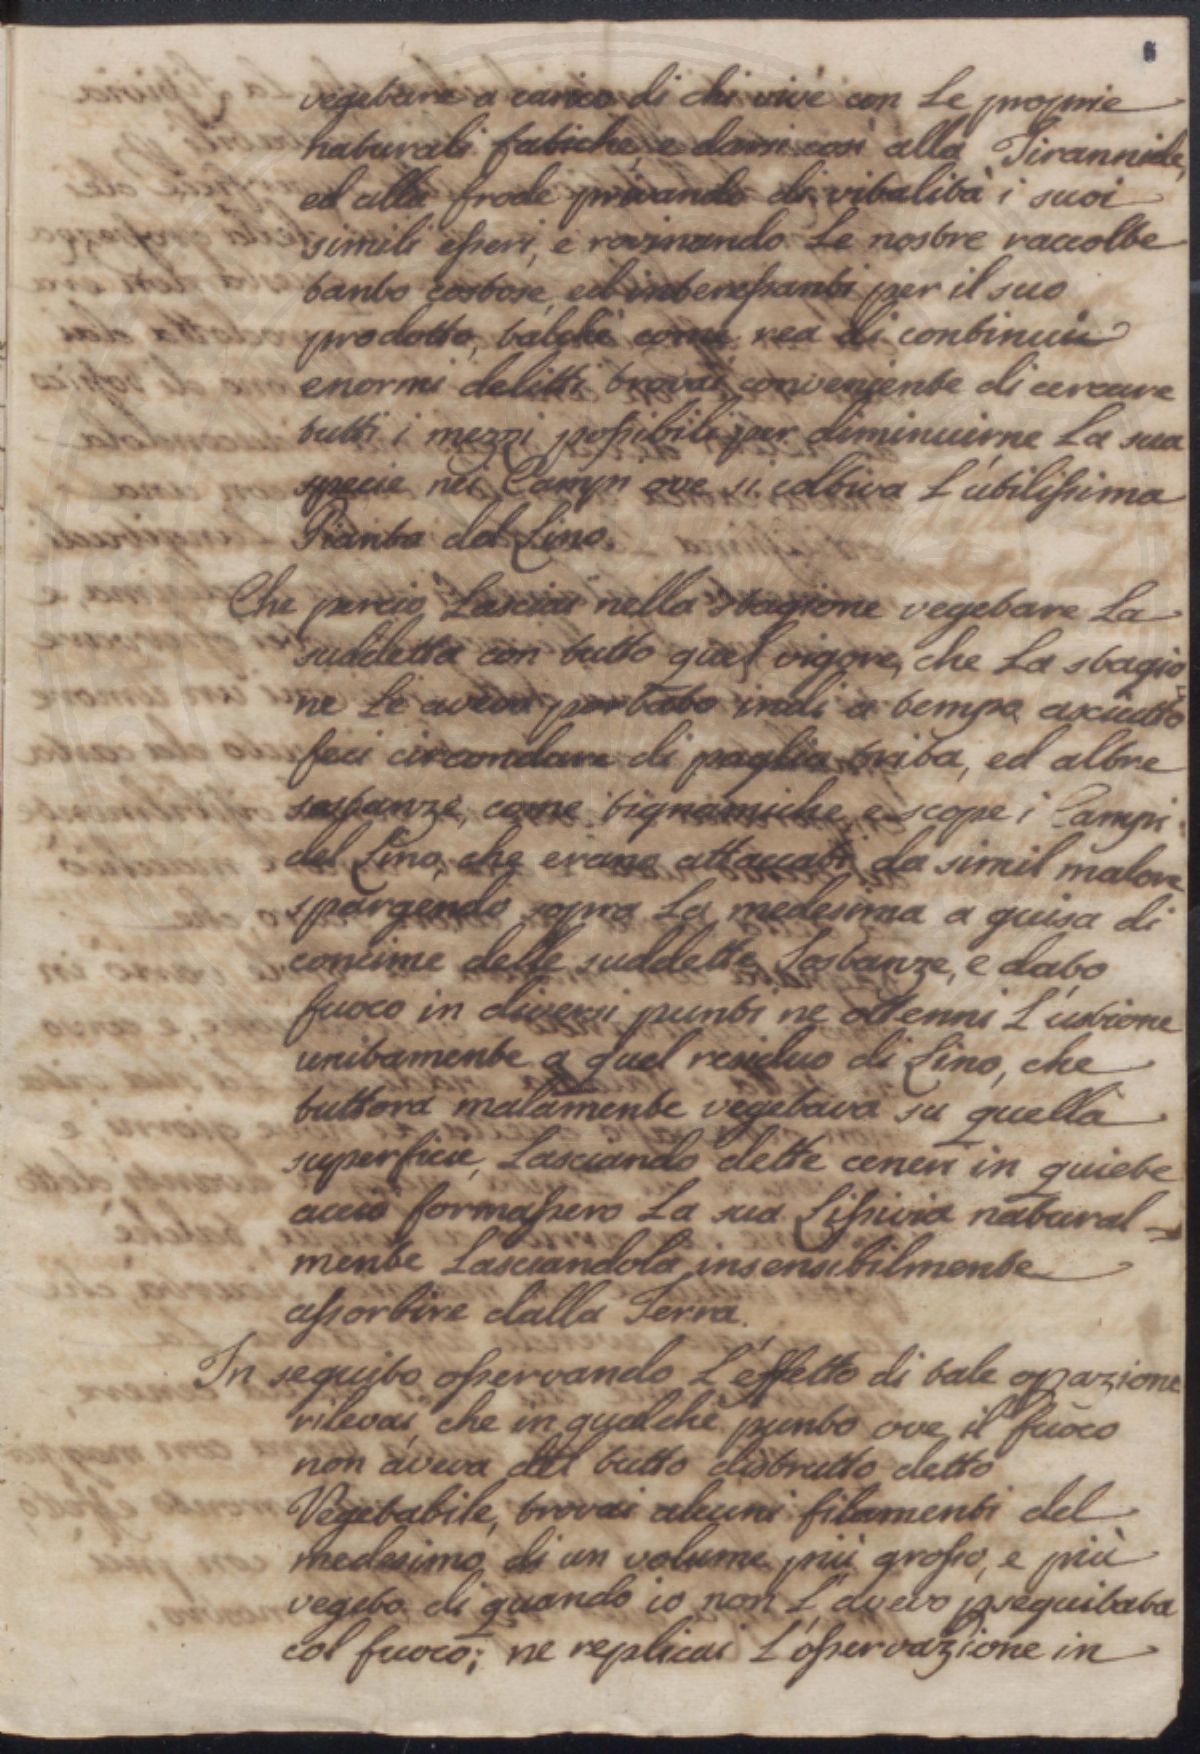 6
vegetare a carico di chi vive con Le proprie
naturali fatiche, e darsi così alla Tirannide,
ed alla frode privando di vitalità i suoi
simili esseri, e rovinando Le nostre raccolte
tanto costose, ed interessanti per il suo
prodotto, talchè come rea di continui
enormi delitti trovai conveniente di cercare
tutti i mezzi possibili per diminuirne La sua
specie nei Campi ove si coltiva L'utilissima
Pianta del Lino.
Che perciò Lasciai nella stagione vegetare La
suddetta con tutto quel vigore, che La stagio
ne Le aveva portato indi a tempo asciutto
feci circondare di paglia trita, ed altre
sostanze, come tignamiche e scope i Campi
del Lino, che erano attaccati da simil malore
spargendo sopra La medesima a guisa di
concime delle suddette Sostanze, e dato
fuoco in diversi punti ne ottenni L'ustione
unitamente a quel residuo di Lino, che
tuttora malamente vegetava su quella
superficie, Lasciando dette ceneri in quiete
acciò formassero La sua Lissivia natural-
mente Lasciandola insensibilmente
assorbire dalla Terra.
In seguito osservando L'effetto di tale opazione
rilevai, che in qualche punto ove il fuoco
non aveva del tutto distrutto detto
Vegetabile, trovai alcuni filamenti del
medesimo di un volume più grosso, e più
vegeto di quando io non L'avevo pseguitata
col fuoco; ne replicai L'osservazione in